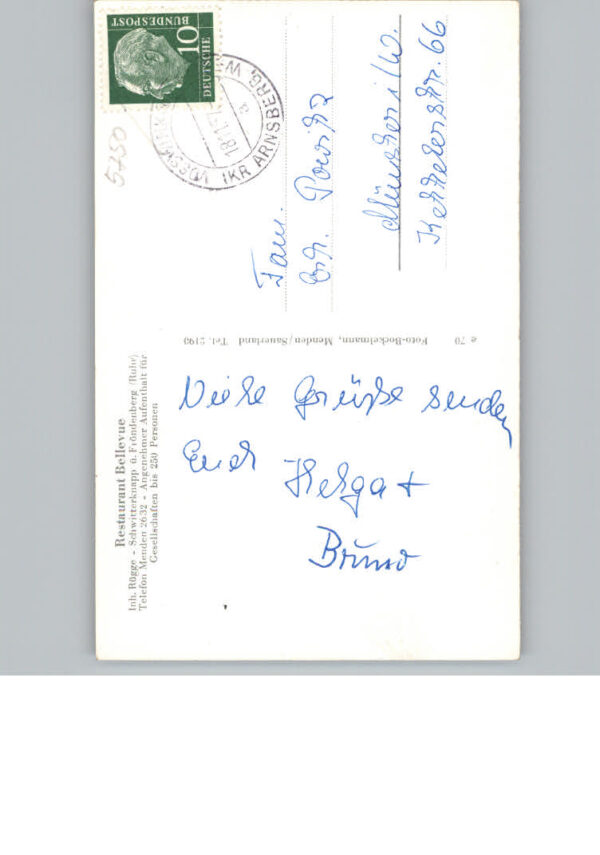 Restaurant Bellevue
Inh. Rögge - Schwitterknapp ü. Fröndenberg (Ruhr)
Telefon Menden 2632 - Angenehmer Aufenthalt für
Gesellschaften bis 250 Personen
Viele Grüße senden
Euch Helga +
Bruno
e 70 Foto-Bockelmann, Menden/Sauerland Tel. 2193
10
DEUTSCHE
BUNDESPOST
18.1.57
a
IKR ARNSBERG, W
5750
Fam.
Münster i/W.
Kettelerstr. 66